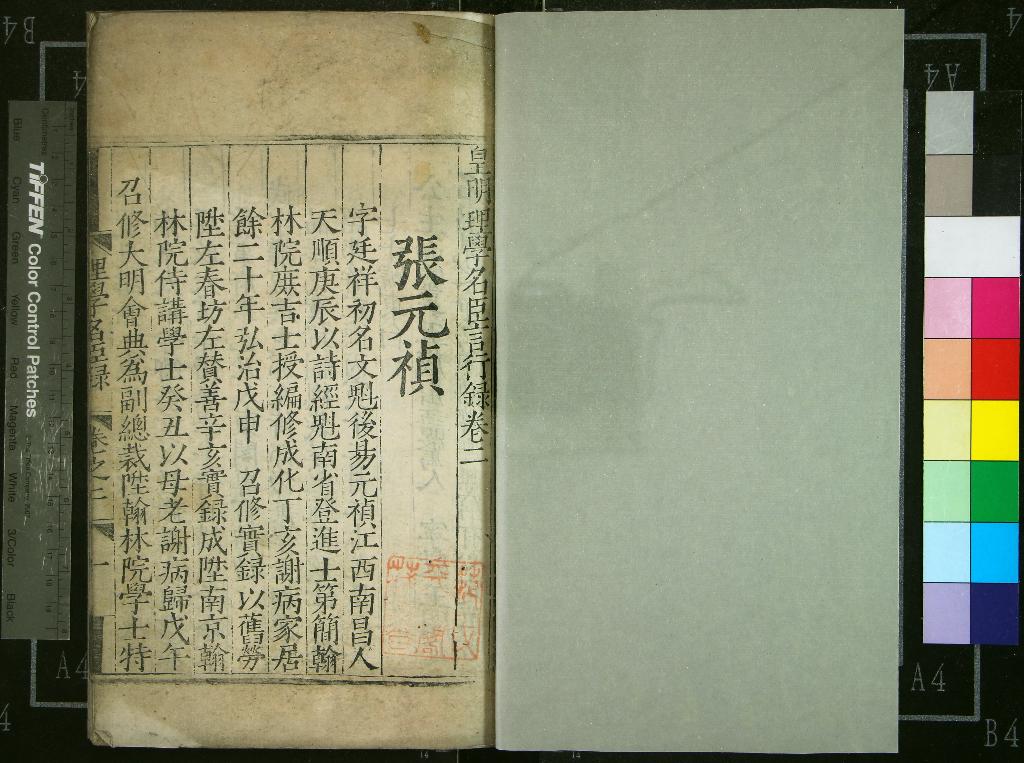 皇明理學名臣言行録卷二
張元禎
字廷祥初名文魁後昜元禎江西南昌人
天順庚辰以詩經魁南省登進士第簡翰
林院庶吉士授編修成化丁亥謝病家居
餘二十年弘治戊申　召修實録以舊勞
陞左春坊左賛善辛亥實録成陞南京翰
林院侍講學士癸丑以母老謝病歸戊午
召修大明會典為副總裁陞翰林院學士特
理學名臣録　卷之二　一
TIFFEN Color Control Patches
Blue Cyan Green Yellow Red Magenta White 3/Color Black
B4
A4
A4
B4
A4
A4
B4